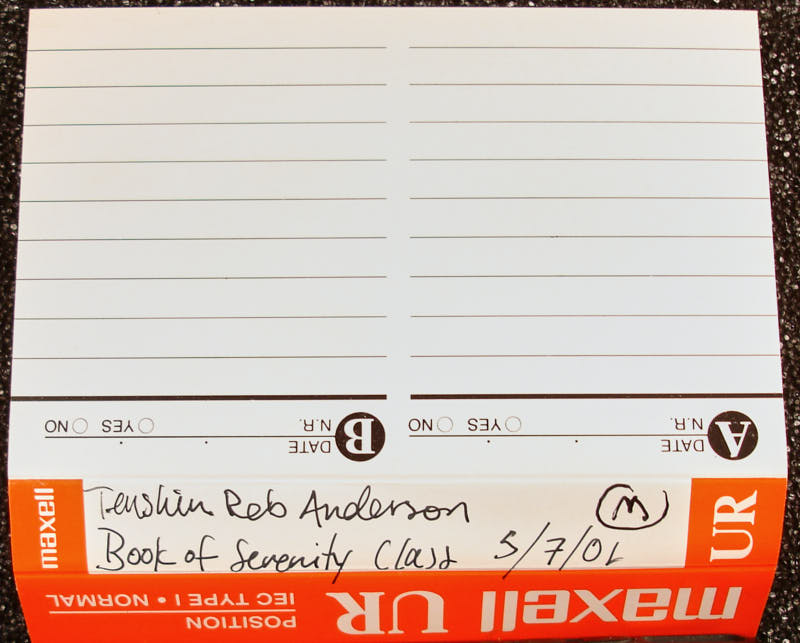 A DATE
N.R. YES NO
B DATE
N.R. YES NO
maxell
Tenshin Reb Anderson M
Book of Serenity Class 5/7/01
UR
maxell UR POSITION
IEC TYPE I • NORMAL